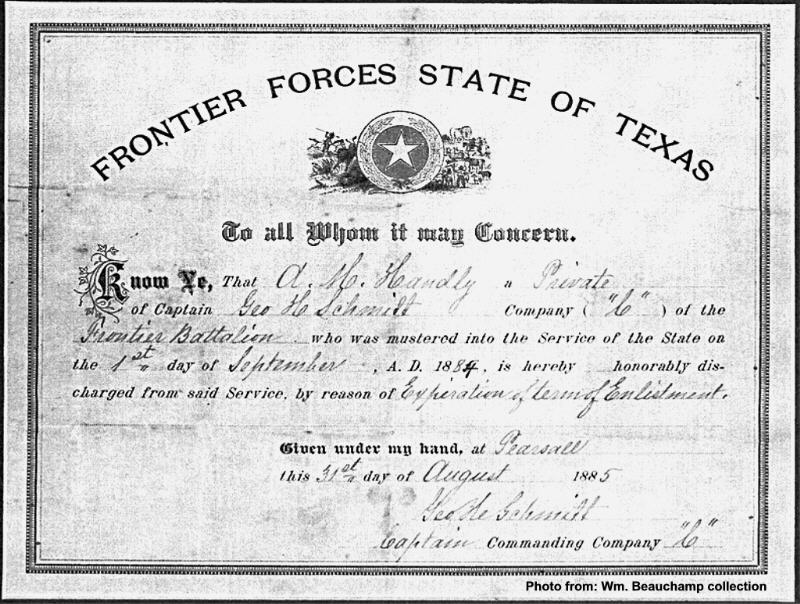 FRONTIER FORCES STATE OF TEXAS
To all Whom it may Concern.
Know Ye, That A. M. Handly a Private
of Captain Geo H Schmitt Company ( "C" ) of the
Frontier Battalion who was mustered into the Service of the State on
the 1st day of September, A. D. 1884, is hereby honorably dis-
charged from said Service, by reason of Expiration of term of Enlistment.
Given under my hand, at Pearsall
this 31st day of August 1885
Geo H Schmitt
Captain Commanding Company "C"
Photo from: Wm. Beauchamp collection